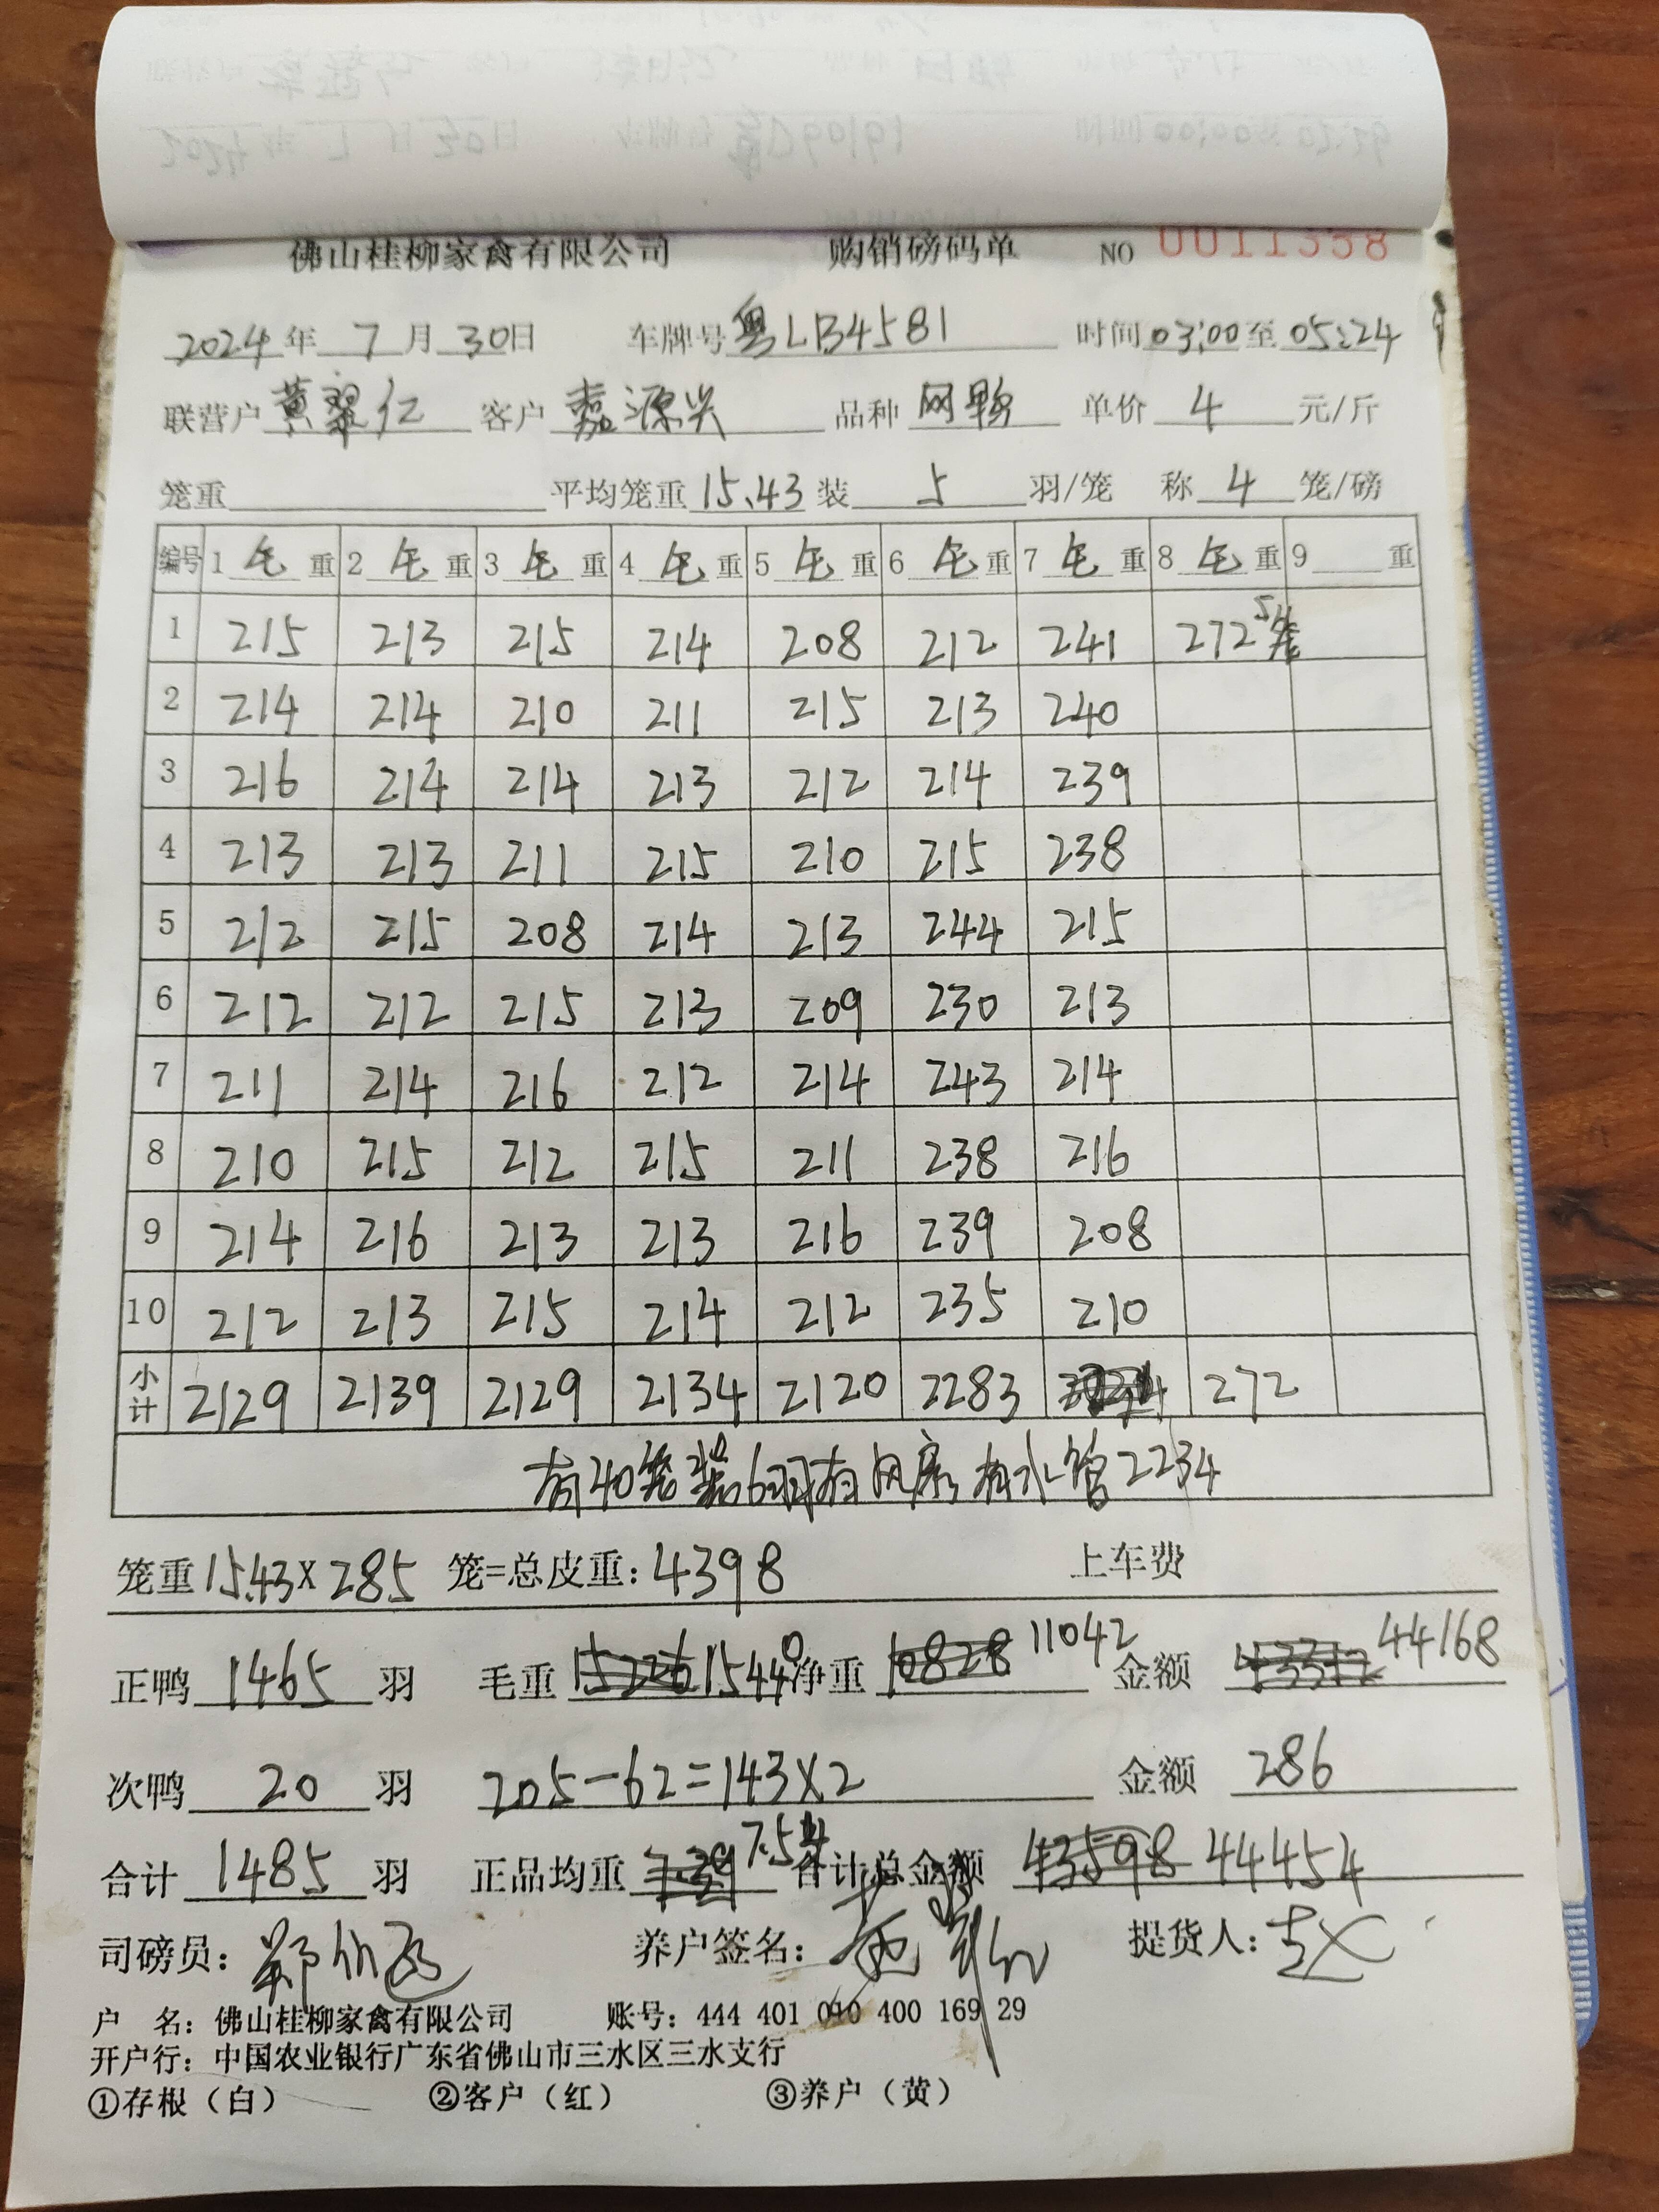 佛山桂柳家禽有限公司 购销磅码单 NO 0011358
2024年 7月 30日 车牌号 粤LB4581 时间 03:00 至 05:24
联营户 黄翠仁 客户 嘉源兴 品种 网鸭 单价 4 元/斤
笼重 平均笼重 15.43 装 5 羽/笼 称 4 笼/磅
编号 1 毛 重 2 毛 重 3 毛 重 4 毛 重 5 毛 重 6 毛 重 7 毛 重 8 毛 重 9 重
1 215 213 215 214 208 212 241 272 5笼
2 214 214 210 211 215 213 240
3 216 214 214 213 212 214 239
4 213 213 211 215 210 215 238
5 212 215 208 214 213 244 215
6 212 212 215 213 209 230 213
7 211 214 216 212 214 243 214
8 210 215 212 215 211 238 216
9 214 216 213 213 216 239 208
10 212 213 215 214 212 235 210
小计 2129 2139 2129 2134 2120 2283 272
有40笼装6羽有风房有水管 2234
笼重 15.43×285 笼=总皮重: 4398 上车费
正鸭 1465 羽 毛重 15226 15440 净重 10828 11042 金额 43312 44168
次鸭 20 羽 205-62=143×2 金额 286
合计 1485 羽 正品均重 7.39 7.54 合计总金额 43598 44454
司磅员: 养户签名: 提货人: 赵
户 名: 佛山桂柳家禽有限公司 账号: 444 401 040 400 169 29
开户行: 中国农业银行广东省佛山市三水区三水支行
①存根（白） ②客户（红） ③养户（黄）